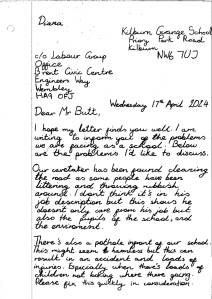 Diana
Kilburn Grange School
Priory Park Road
Kilburn
NW6 7UJ
c/o Labour Group
Office
Brent Civic Centre
Engineers Way
Wembley
HA9 0FJ
Wednesday 17th April 2024
Dear Mr Butt,
I hope my letter finds you well. I am
writing to inform you of the problems
we are facing as a school. Below
are the problems I'd like to discuss.
Our caretaker has been found clearing
the road as some people have been
littering and throwing rubbish
around. I don't think it's in his
job description but this shows he
doesnt only care from his job but
also the pupils of the school, and
the enviroment.
There's also a pothole infront of our school.
This might seem a harmless but this can
result in an accident and loads of
injuries. Especially when there's loads of
children not looking where there going.
Please fix this quickly in consideration.